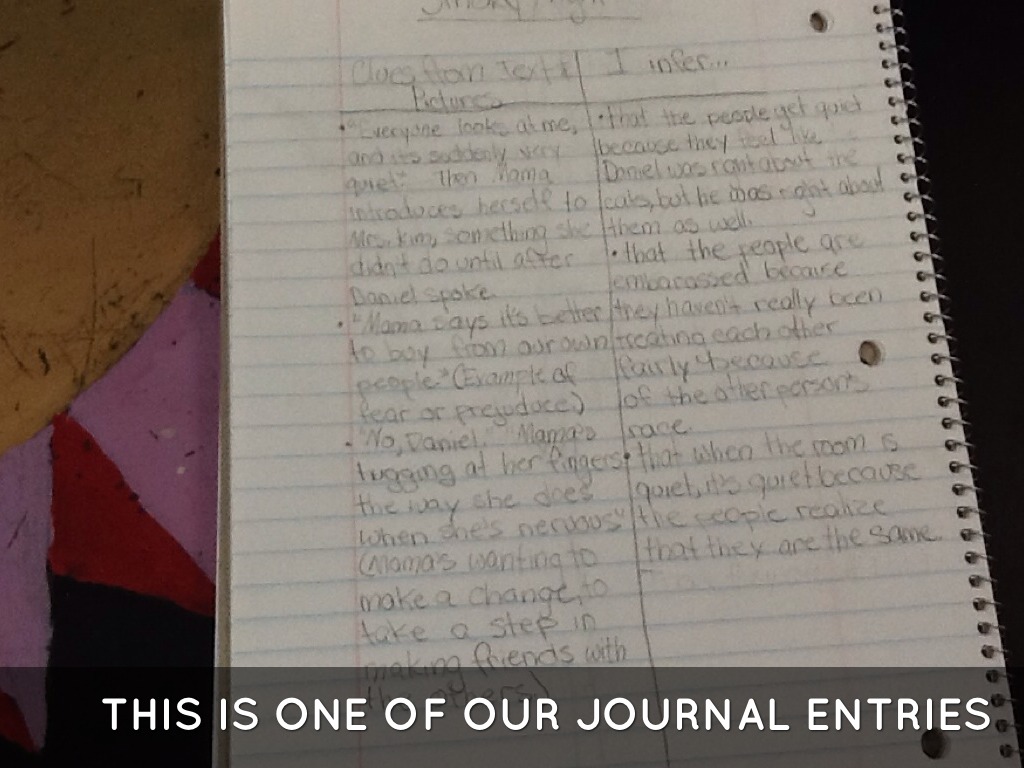 Smoky Night
Clues from Text &
Pictures
• "Everyone looks at me,
and it's suddenly very
quiet." Then Mama
introduces herself to
Mrs. Kim, something she
didn't do until after
Daniel spoke.
• "Mama says it's better
to buy from our own
people." (Example of
fear or prejuduce.)
• "No, Daniel." Mama's
tugging at her fingers
the way she does
when she's nervous"
(Mama's wanting to
make a change, to
take a step in
making friends with
the others)
I infer...
• that the people get quiet
because they feel like
Daniel was right about the
cats, but he was right about
them as well.
• that the people are
embarassed because
they haven't really been
treating each other
fairly because
of the other person's
race.
• that when the room is
quiet, it's quiet because
the people realize
that they are the same.
THIS IS ONE OF OUR JOURNAL ENTRIES